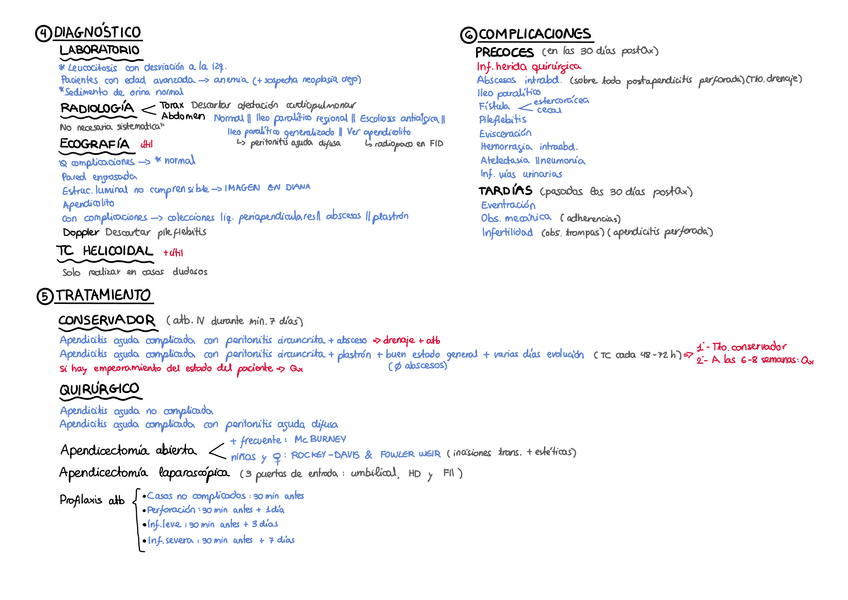 ④ DIAGNÓSTICO
LABORATORIO
* Leucocitosis con desviación a la izq.
Pacientes con edad avanzada → anemia (+ sospecha neoplasia ciego)
* Sedimento de orina normal
RADIOLOGÍA < Torax Descartar afectación cardiopulmonar
Abdomen Normal || Íleo paralítico regional || Escoliosis antiálgica ||
No necesaria sistemática
Íleo paralítico generalizado || Ver apendicolito
↳ peritonitis aguda difusa ↳ radiopaco en FID
ECOGRAFÍA útil
complicaciones → * normal
Pared engrosada
Estruc. luminal no comprensible → IMAGEN EN DIANA
Apendicolito
Con complicaciones → colecciones liq. periapendiculares || abscesos || plastrón
Doppler Descartar pileflebitis
TC HELICOIDAL + útil
Solo realizar en casos dudosos
⑤ TRATAMIENTO
CONSERVADOR (atb. IV durante min. 7 días)
Apendicitis aguda complicada con peritonitis circunscrita + absceso ⇒ drenaje + atb
Apendicitis aguda complicada con peritonitis circunscrita + plastrón + buen estado general + varios días evolución (TC cada 48-72 h) ⇒ 1º- Tto. conservador
2º- A las 6-8 semanas: Qx
(∅ abscesos)
Si hay empeoramiento del estado del paciente → Qx
QUIRÚRGICO
Apendicitis aguda no complicada
Apendicitis aguda complicada con peritonitis aguda difusa
Apendicectomía abierta < + frecuente: McBURNEY
niños y ♀: ROCKEY-DAVIS & FOWLER WEIR (incisiones trans. + estéticas)
Apendicectomía laparoscópica (3 puertos de entrada: umbilical, HD y FII)
Profilaxis atb
• Casos no complicados: 30 min antes
• Perforación: 30 min antes + 1 día
• Inf. leve: 30 min antes + 3 días
• Inf. severa: 30 min antes + 7 días
⑥ COMPLICACIONES
PRECOCES (en los 30 días postQx)
Inf. herida quirúrgica
Abscesos intrabd. (sobre todo postapendicitis perforada) (Tto. drenaje)
Íleo paralítico
Fístula < estercorácea
cecal
Pileflebitis
Evisceración
Hemorragia intraabd.
Atelectasia || neumonía
Inf. vías urinarias
TARDÍAS (pasados los 30 días postQx)
Eventración
Obs. mecánica (adherencias)
Infertilidad (obs. trompas) (apendicitis perforada)